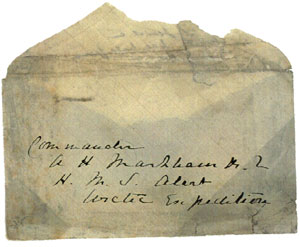 Commander
A H Markham R. N
H. M. S. Alert
Arctic Expedition